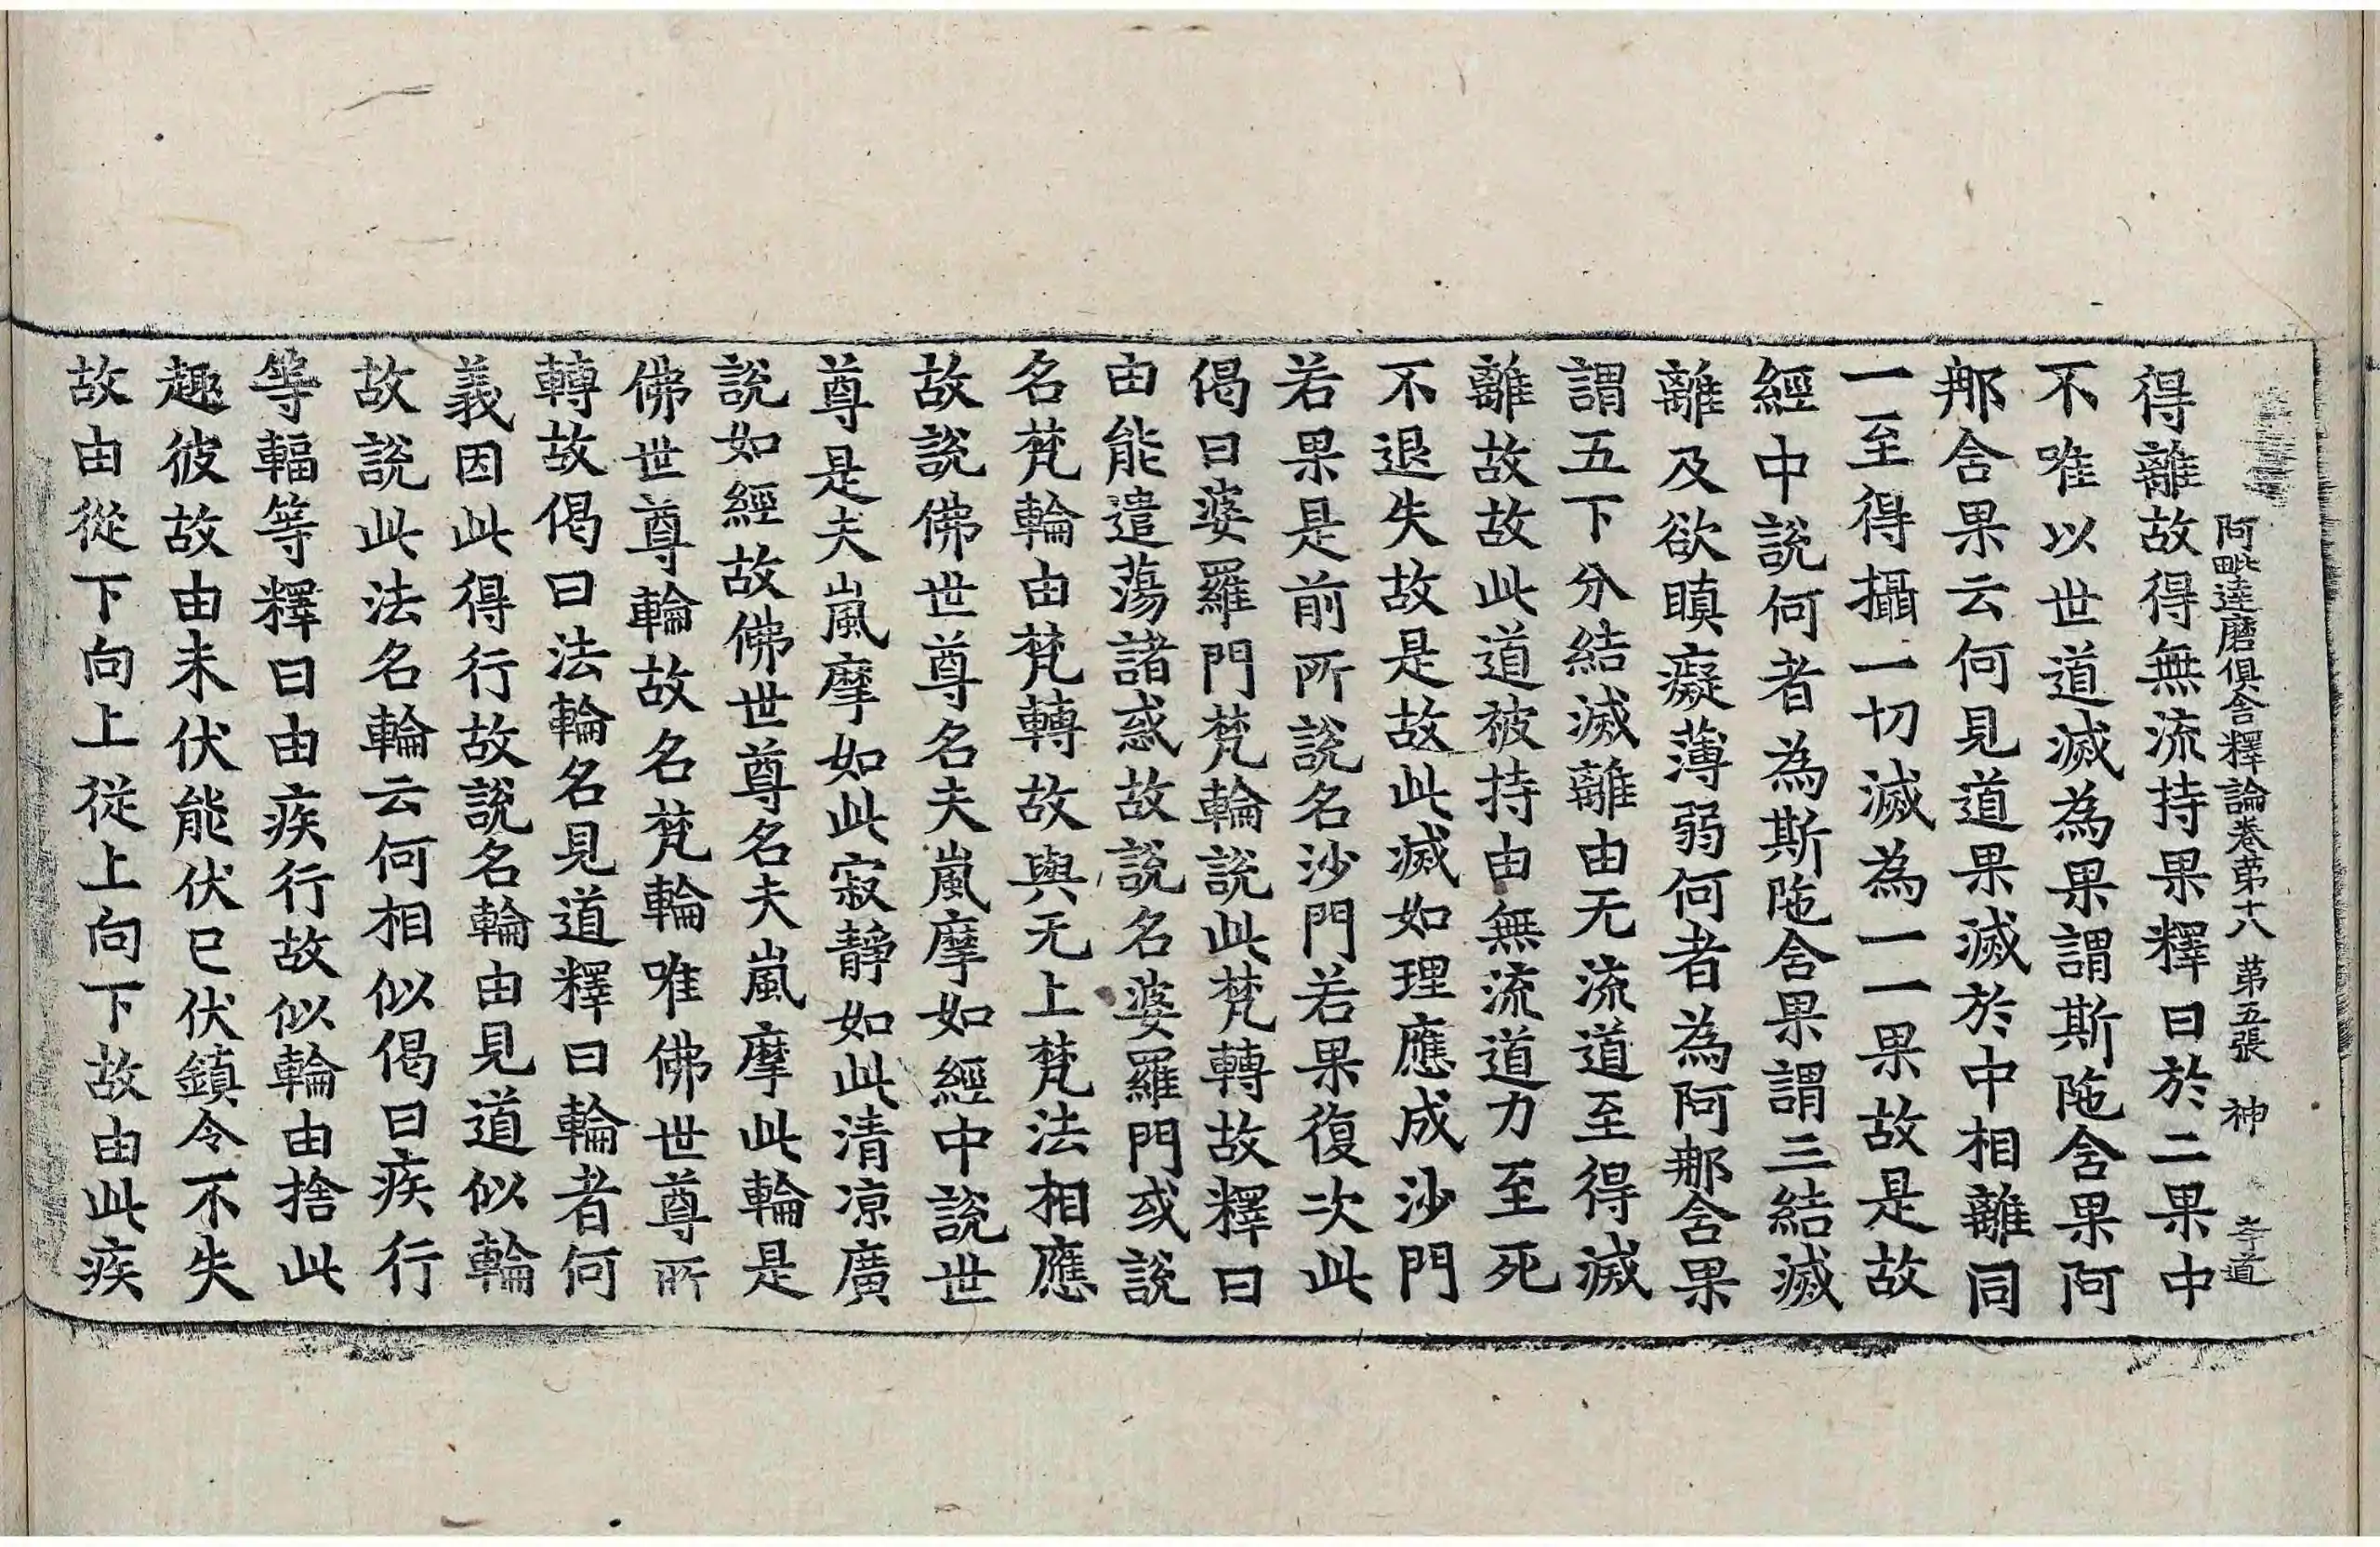 阿毗達磨俱舍釋論卷第十八 第五張 神 孝道
得離故得無流持果釋曰於二果中
不唯以世道滅為果謂斯陁舍果阿
那舍果云何見道果滅於中相離同
一至得攝一切滅為一一果故是故
經中說何者為斯陁舍果謂三結滅
離及欲瞋癡薄弱何者為阿那舍果
謂五下分結滅離由无流道至得滅
離故故此道被持由無流道力至死
不退失故是故此滅如理應成沙門
若果是前所說名沙門若果復次此
偈曰婆羅門梵輪說此梵轉故釋曰
由能遣蕩諸惑故說名婆羅門或說
名梵輪由梵轉故與无上梵法相應
故說佛世尊名夫嵐摩如經中說世
尊是夫嵐摩如此寂靜如此清凉廣
說如經故佛世尊名夫嵐摩此輪是
佛世尊輪故名梵輪唯佛世尊所
轉故偈曰法輪名見道釋曰輪者何
義因此得行故說名輪由見道似輪
故說此法名輪云何相似偈曰疾行
等輻等釋曰由疾行故似輪由捨此
趣彼故由未伏能伏已伏鎮令不失
故由從下向上從上向下故由此疾